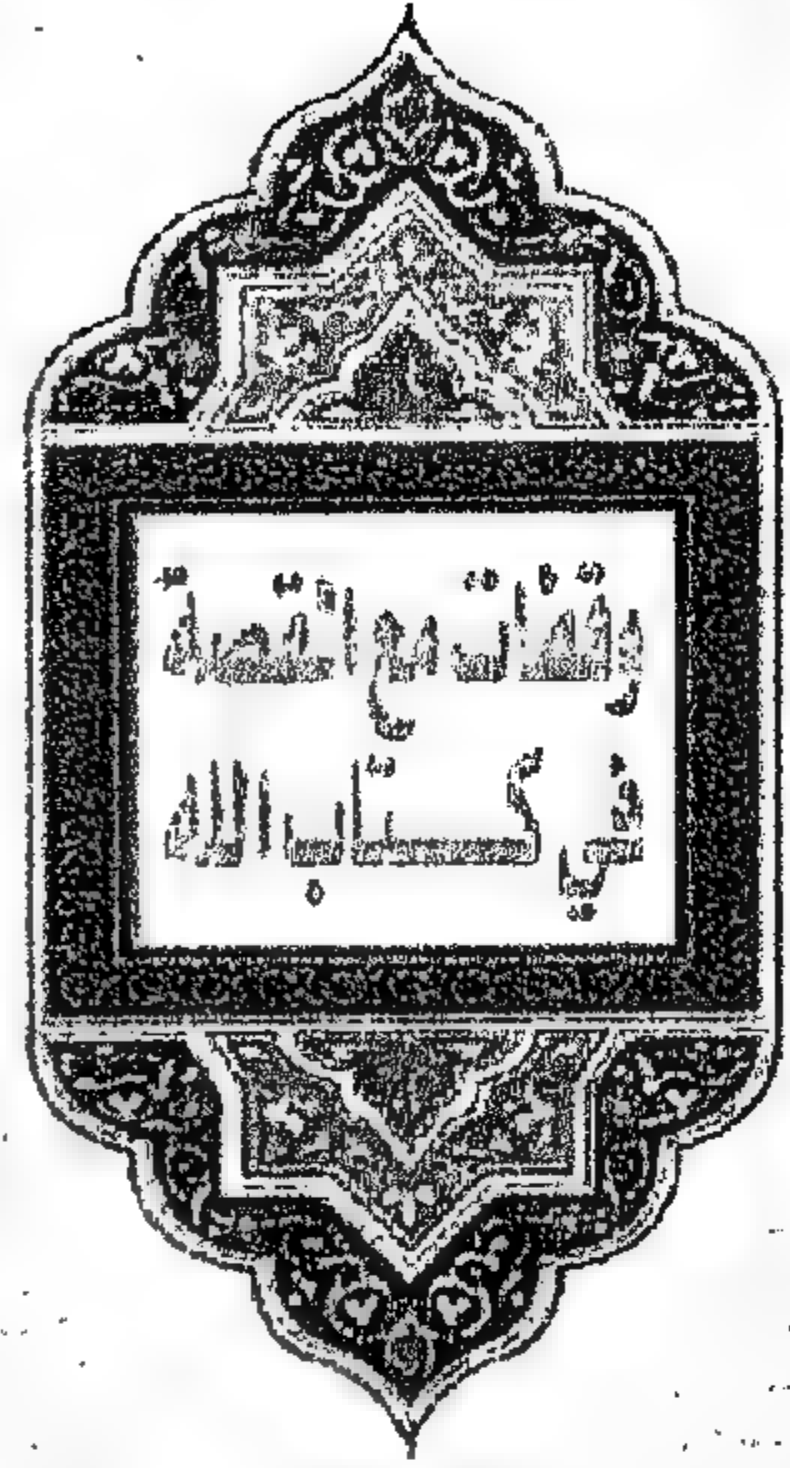 وقفات مع القصة
في كتاب الله